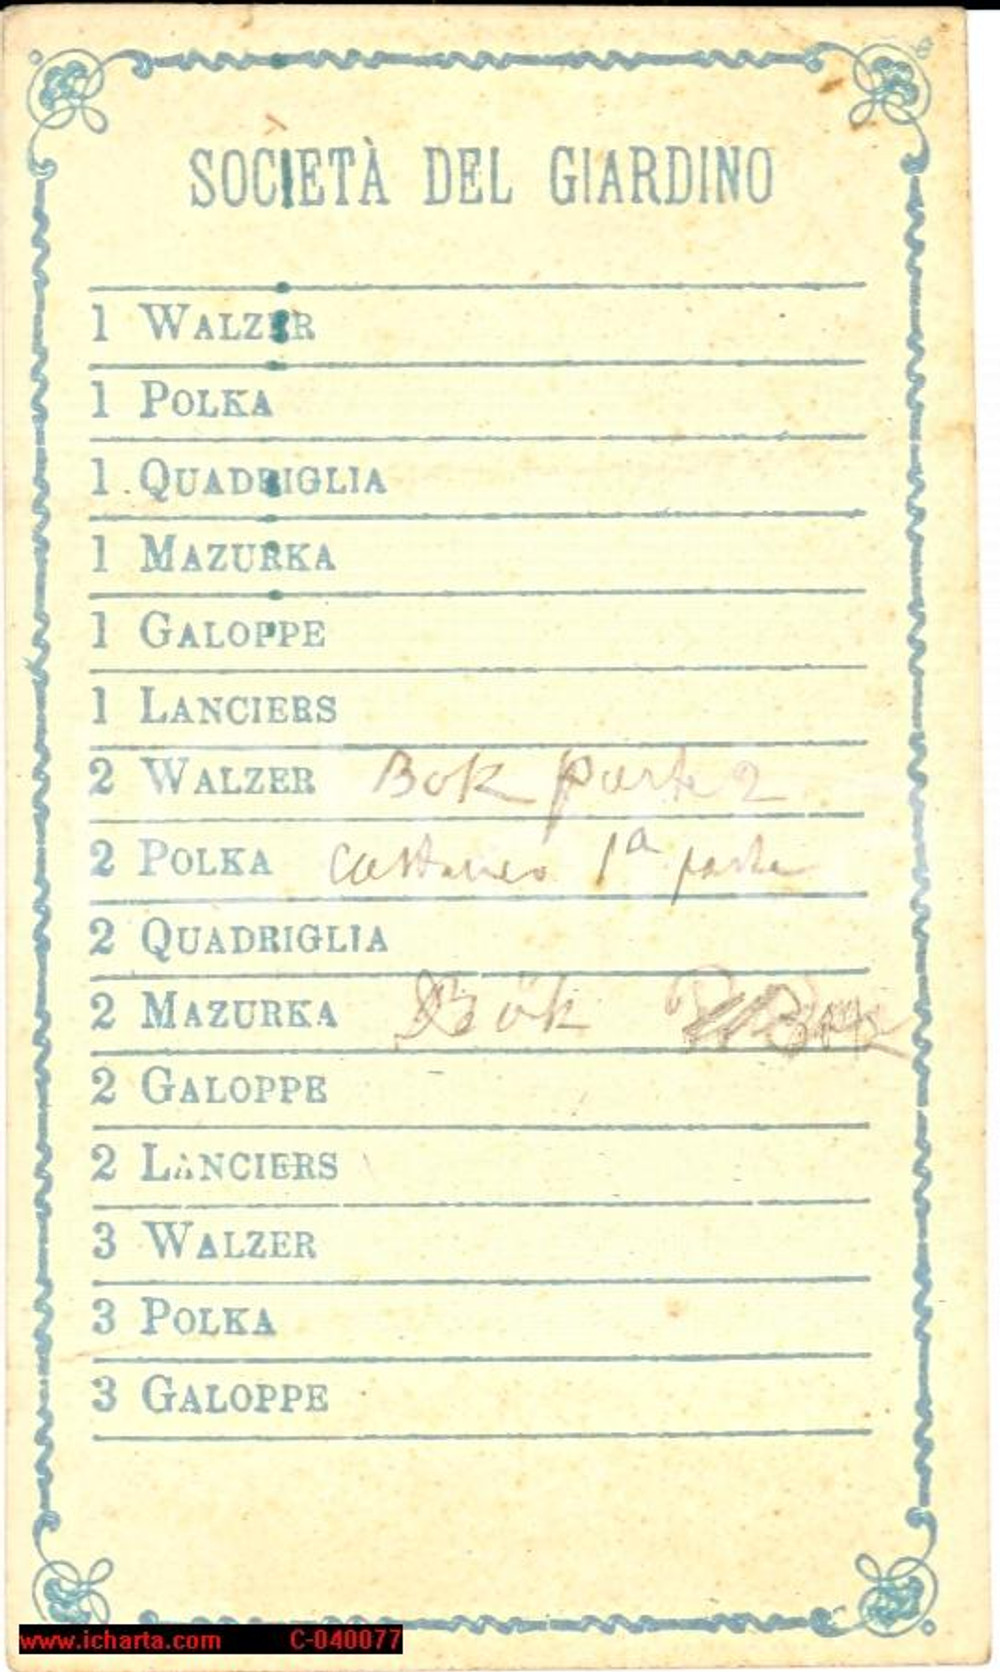 SOCIETÀ DEL GIARDINO
1 WALZER
1 POLKA
1 QUADRIGLIA
1 MAZURKA
1 GALOPPE
1 LANCIERS
2 WALZER Bok parte 2
2 POLKA Cattaneo 1ª parte
2 QUADRIGLIA
2 MAZURKA Bök
2 GALOPPE
2 LANCIERS
3 WALZER
3 POLKA
3 GALOPPE
www.icharta.com C-040077